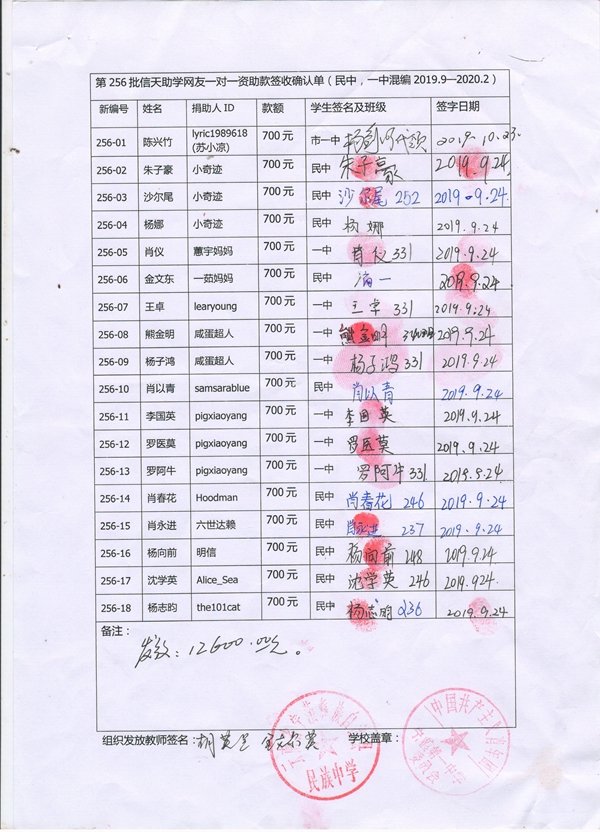 第256批信天助学网友一对一资助款签收确认单（民中，一中混编2019.9—2020.2）
新编号 姓名 捐助人ID 款额 学生签名及班级 签字日期
256-01 陈兴竹 lyric1989618 (苏小凉) 700元 市一中 2019.10.23
256-02 朱子豪 小奇迹 700元 民中 朱子豪 2019.9.24
256-03 沙尔尾 小奇迹 700元 民中 沙尔尾 252 2019.9.24
256-04 杨娜 小奇迹 700元 民中 杨娜 2019.9.24
256-05 肖仪 蕙宇妈妈 700元 一中 肖仪 331 2019.9.24
256-06 金文东 一茹妈妈 700元 民中 2019.9.24
256-07 王卓 learyoung 700元 一中 王卓 331 2019.9.24
256-08 熊金明 咸蛋超人 700元 一中 熊金明 2019.9.24
256-09 杨子鸿 咸蛋超人 700元 一中 杨子鸿 331 2019.9.24
256-10 肖以青 samsarablue 700元 民中 肖以青 2019.9.24
256-11 李国英 pigxiaoyang 700元 一中 李国英 2019.9.24
256-12 罗医莫 pigxiaoyang 700元 一中 罗医莫 2019.9.24
256-13 罗阿牛 pigxiaoyang 700元 一中 罗阿牛 331 2019.9.24
256-14 肖春花 Hoodman 700元 民中 肖春花 246 2019.9.24
256-15 肖永进 六世达赖 700元 民中 肖永进 237 2019.9.24
256-16 杨向前 明信 700元 民中 杨向前 248 2019.9.24
256-17 沈学英 Alice_Sea 700元 民中 沈学英 246 2019.9.24.
256-18 杨志昀 the101cat 700元 民中 杨志昀 236 2019.9.24
备注：
发放：12600.00元。
组织发放教师签名： 学校盖章：
民族中学
中国共产主义青年团